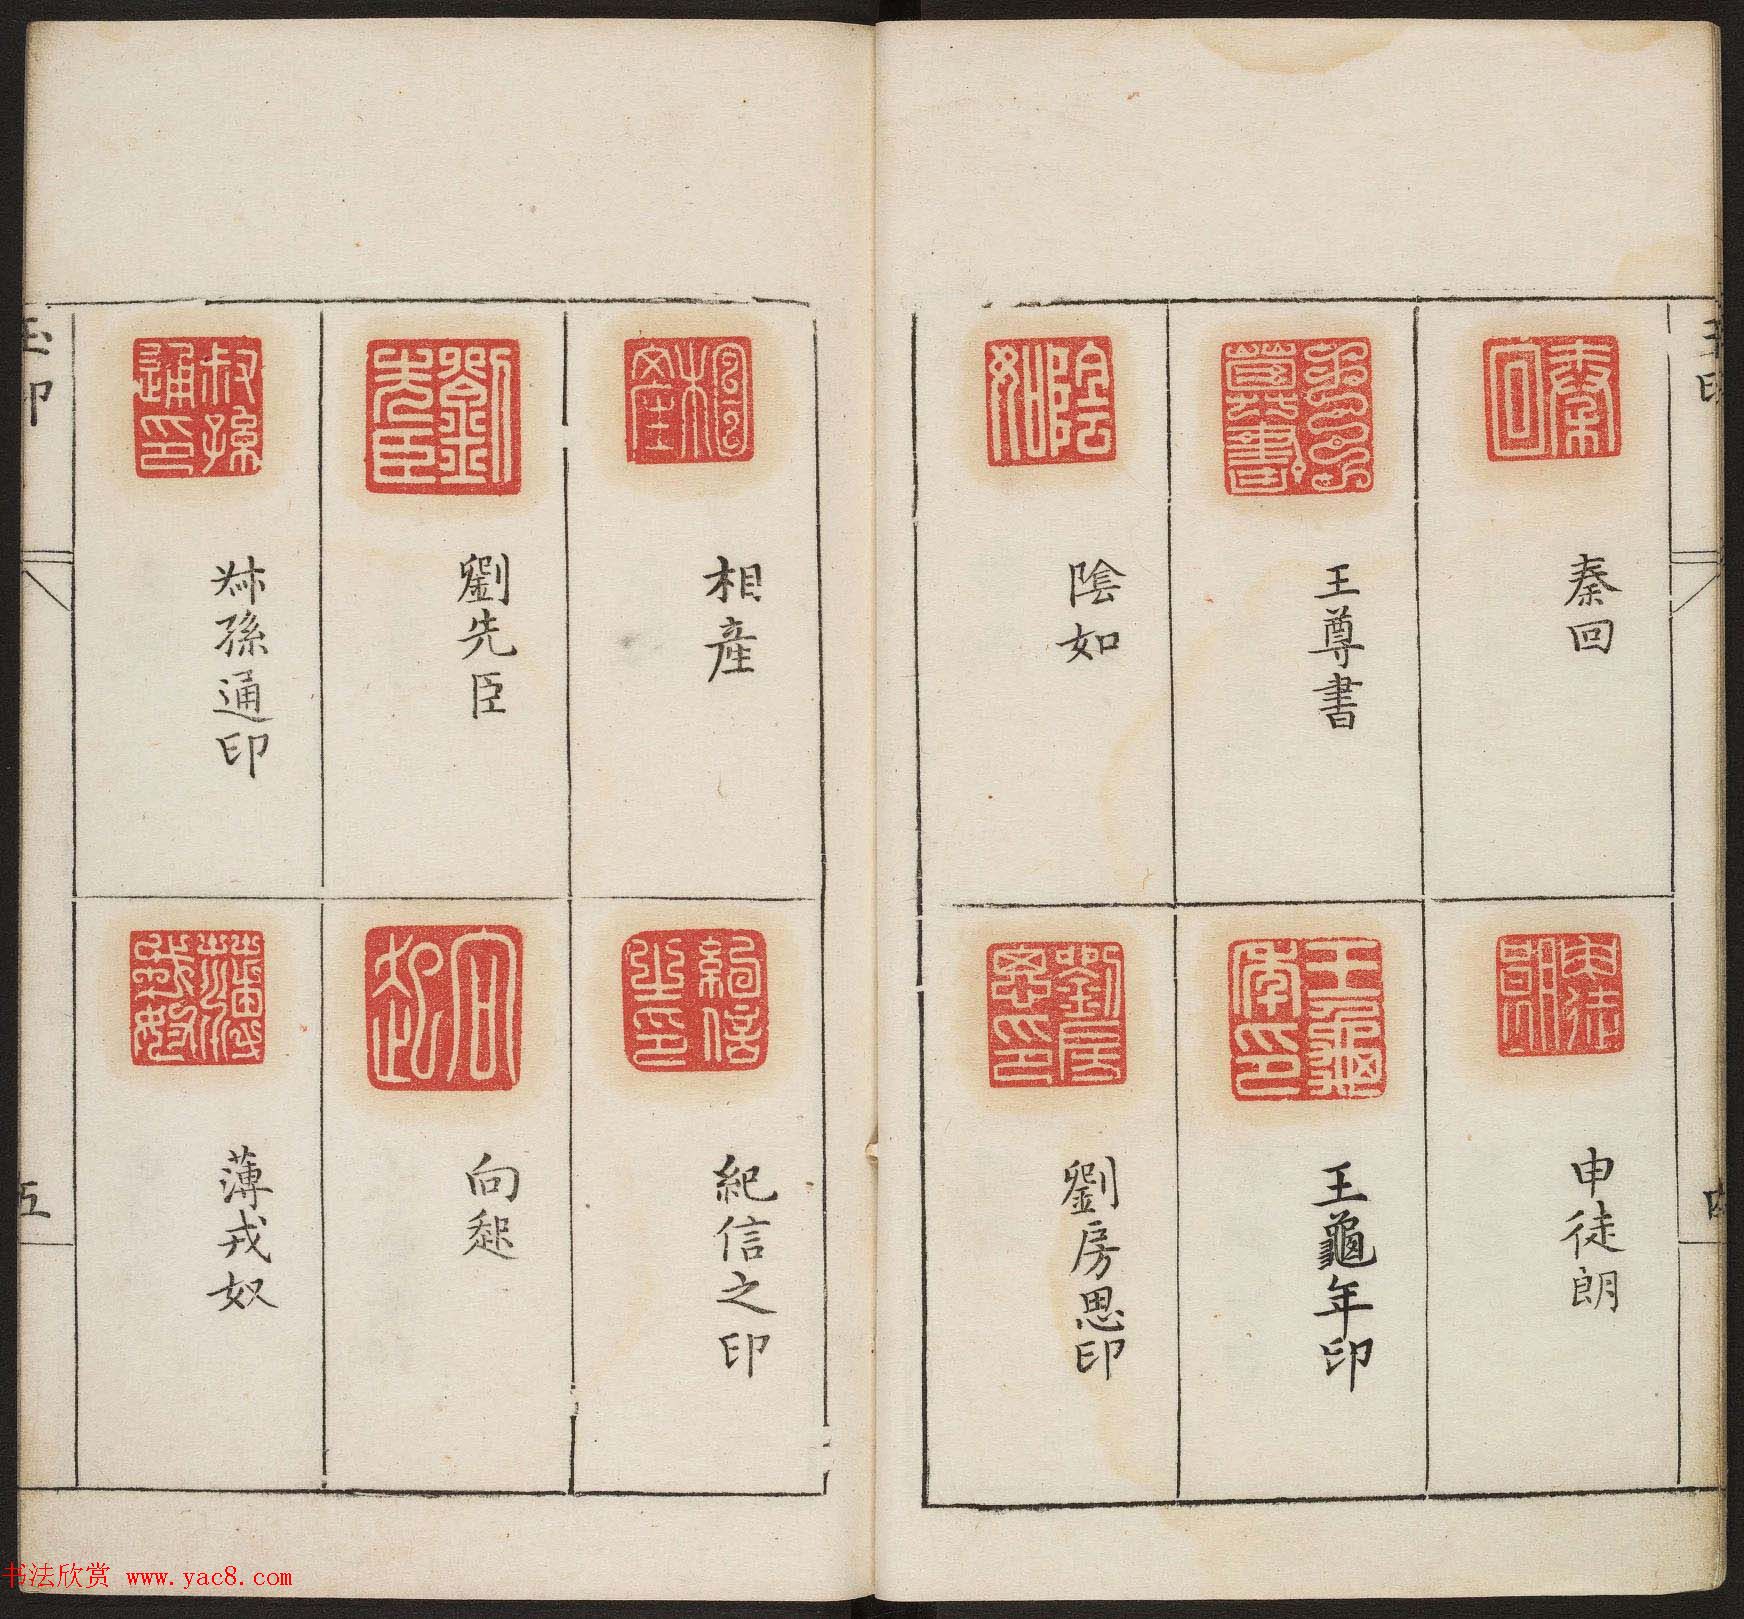 秦回
王尊書
陰如
申徒朗
王龜年印
劉房思印
相產
劉先臣
叔孫通印
紀信之印
向起
薄戎奴
玉印
五
书法欣赏 www.yac8.com